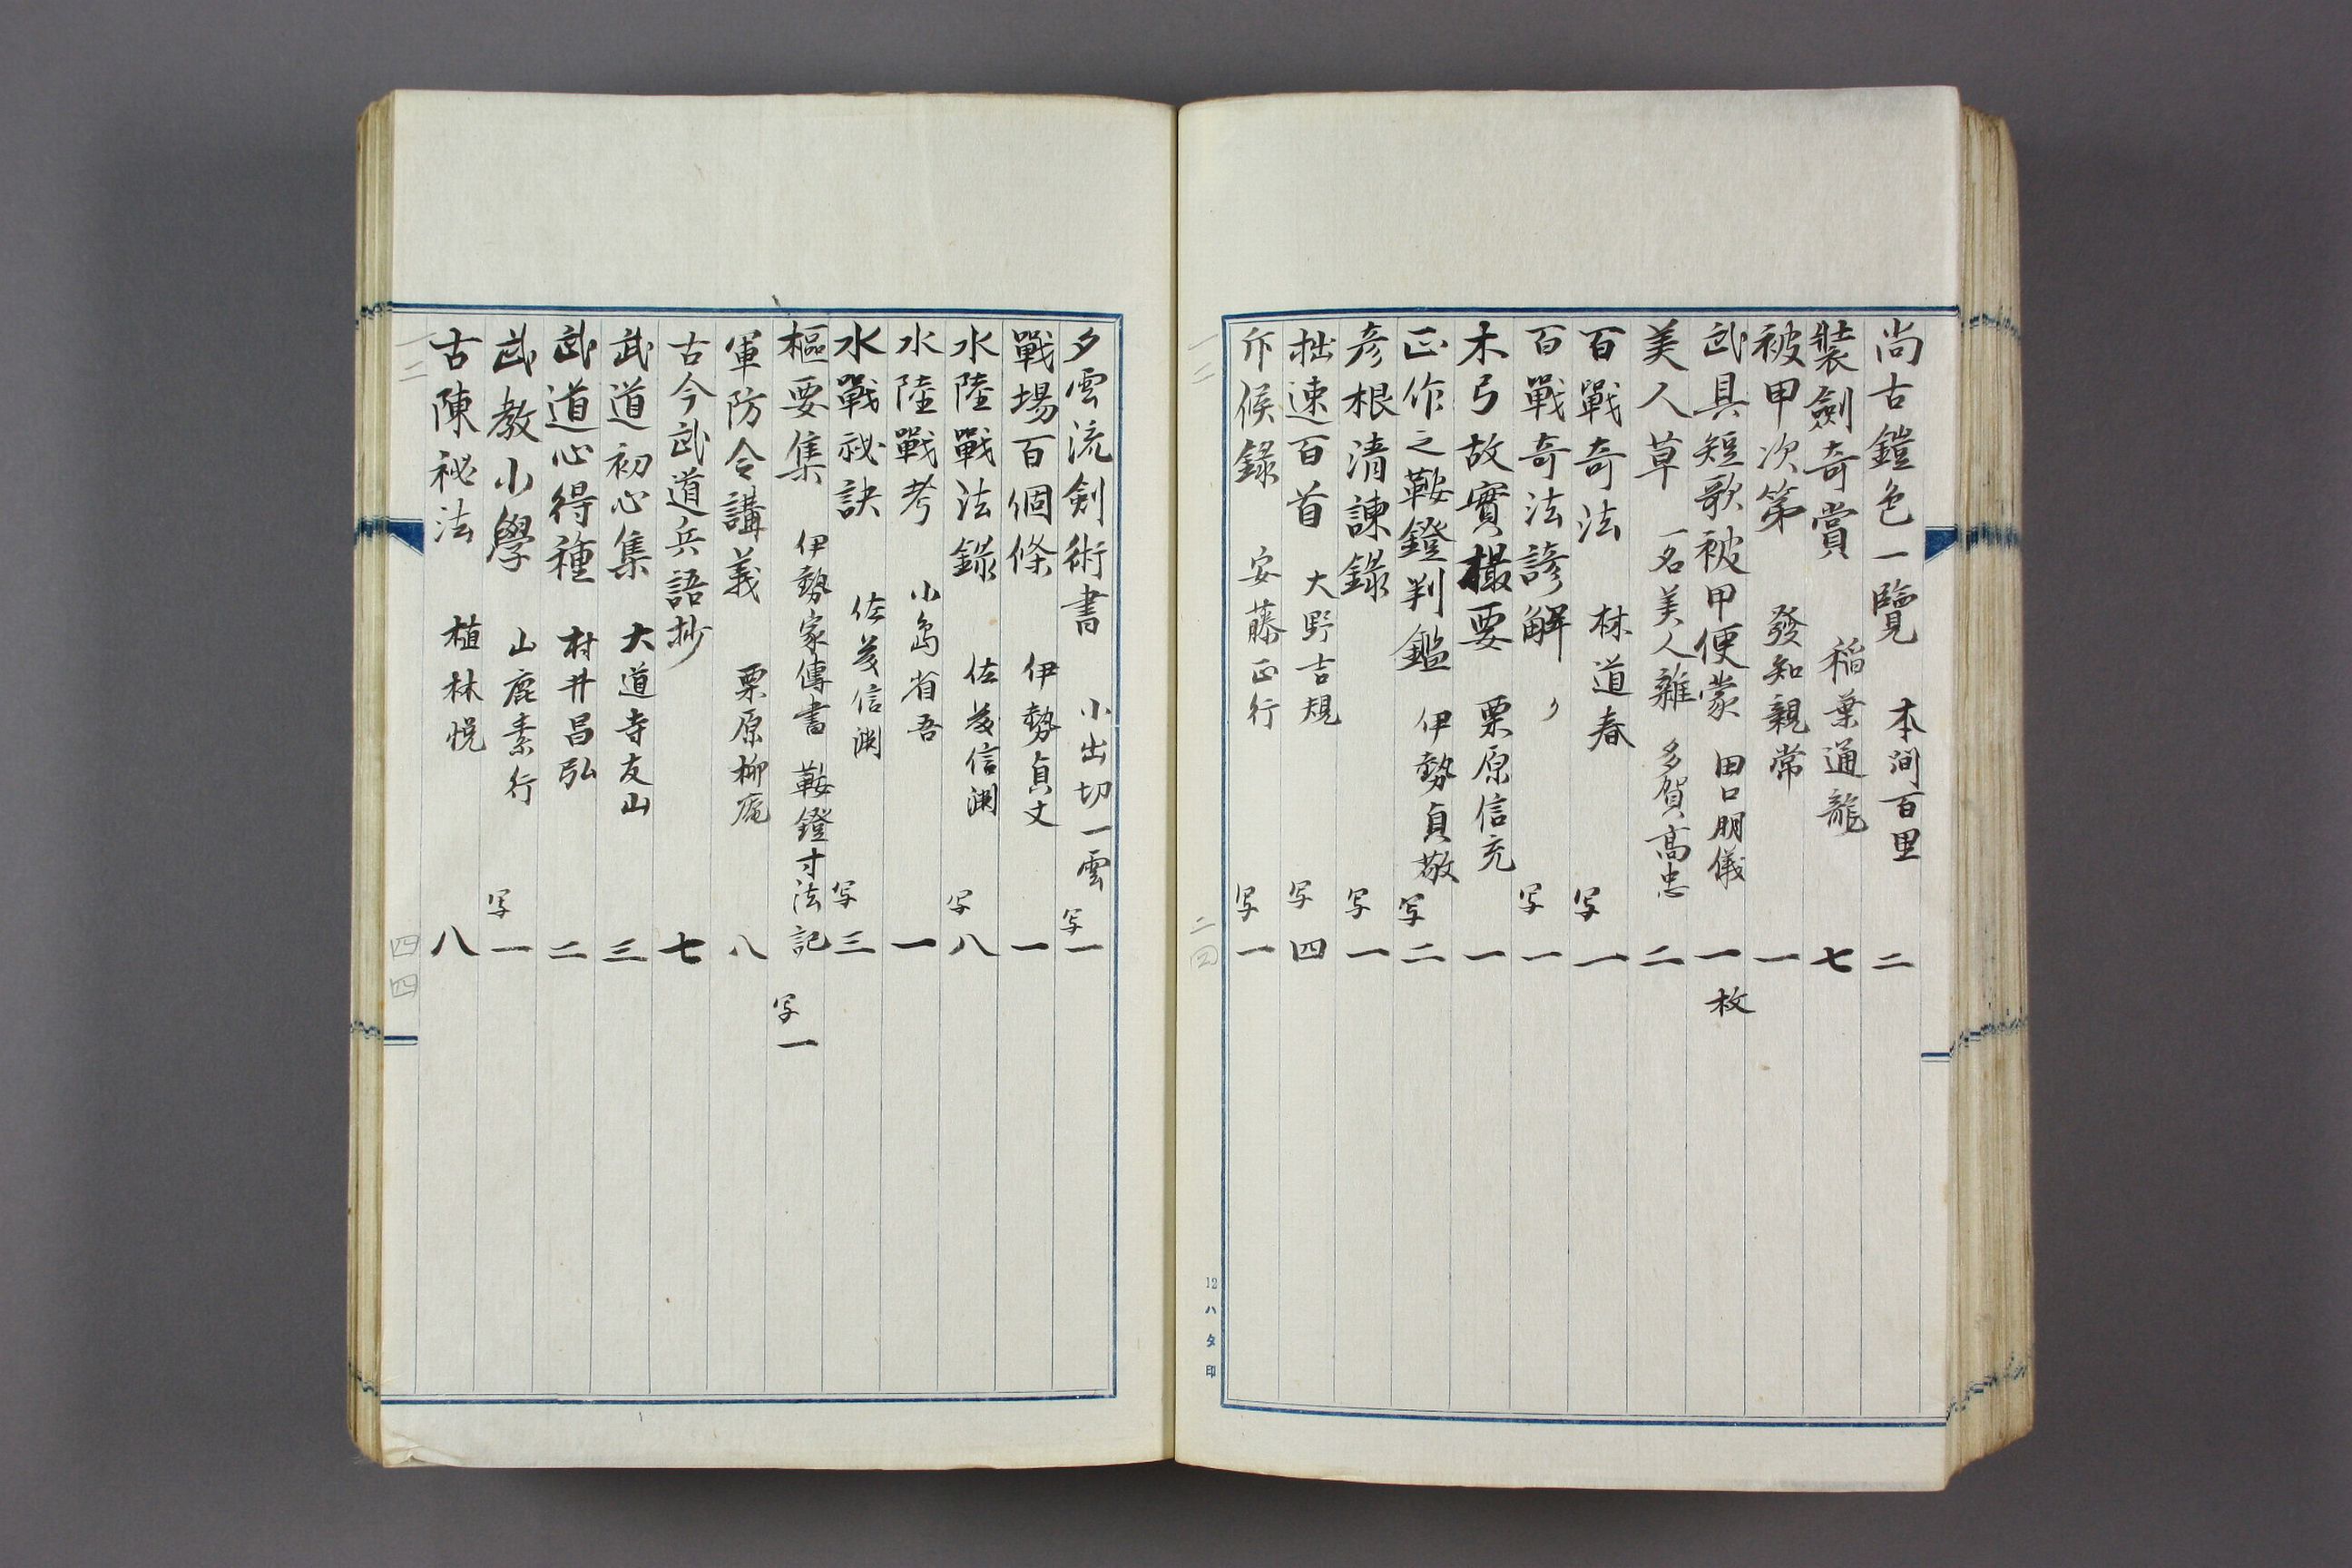 尚古鎧色一覽 本澗百里 二
裝劍奇賞 稲葉通龍 七
被甲次第 發知親常 一
武具短歌被甲便蒙 田口朋儀 一枚
美人草 一名美人雜 多賀高忠 二
百戰奇法 林道春 写一
百戰奇法諺解 〃 写一
木弓故實撮要 栗原信充 一
正作之鞍鐙判鑑 伊勢貞敬 写二
彦根清諫錄 写一
拙速百首 大野吉規 写四
斥候録 安藤正行 写一
一二
二四
12 ハタ印
夕雲流劍術書 小出切一雲 写一
戰場百個條 伊勢貞丈 一
水陸戰法錄 佐藤信淵 写八
水陸戰考 小島省吾 一
水戰祕訣 佐藤信淵 写三
樞要集 伊勢家傳書 鞍鐙寸法記 写一
軍防令講義 栗原柳庵 八
古今武道兵語抄 七
武道初心集 大道寺友山 三
武道心得種 村井昌弘 二
武教小學 山鹿素行 写一
古陳祕法 植林悦 八
一二
四四